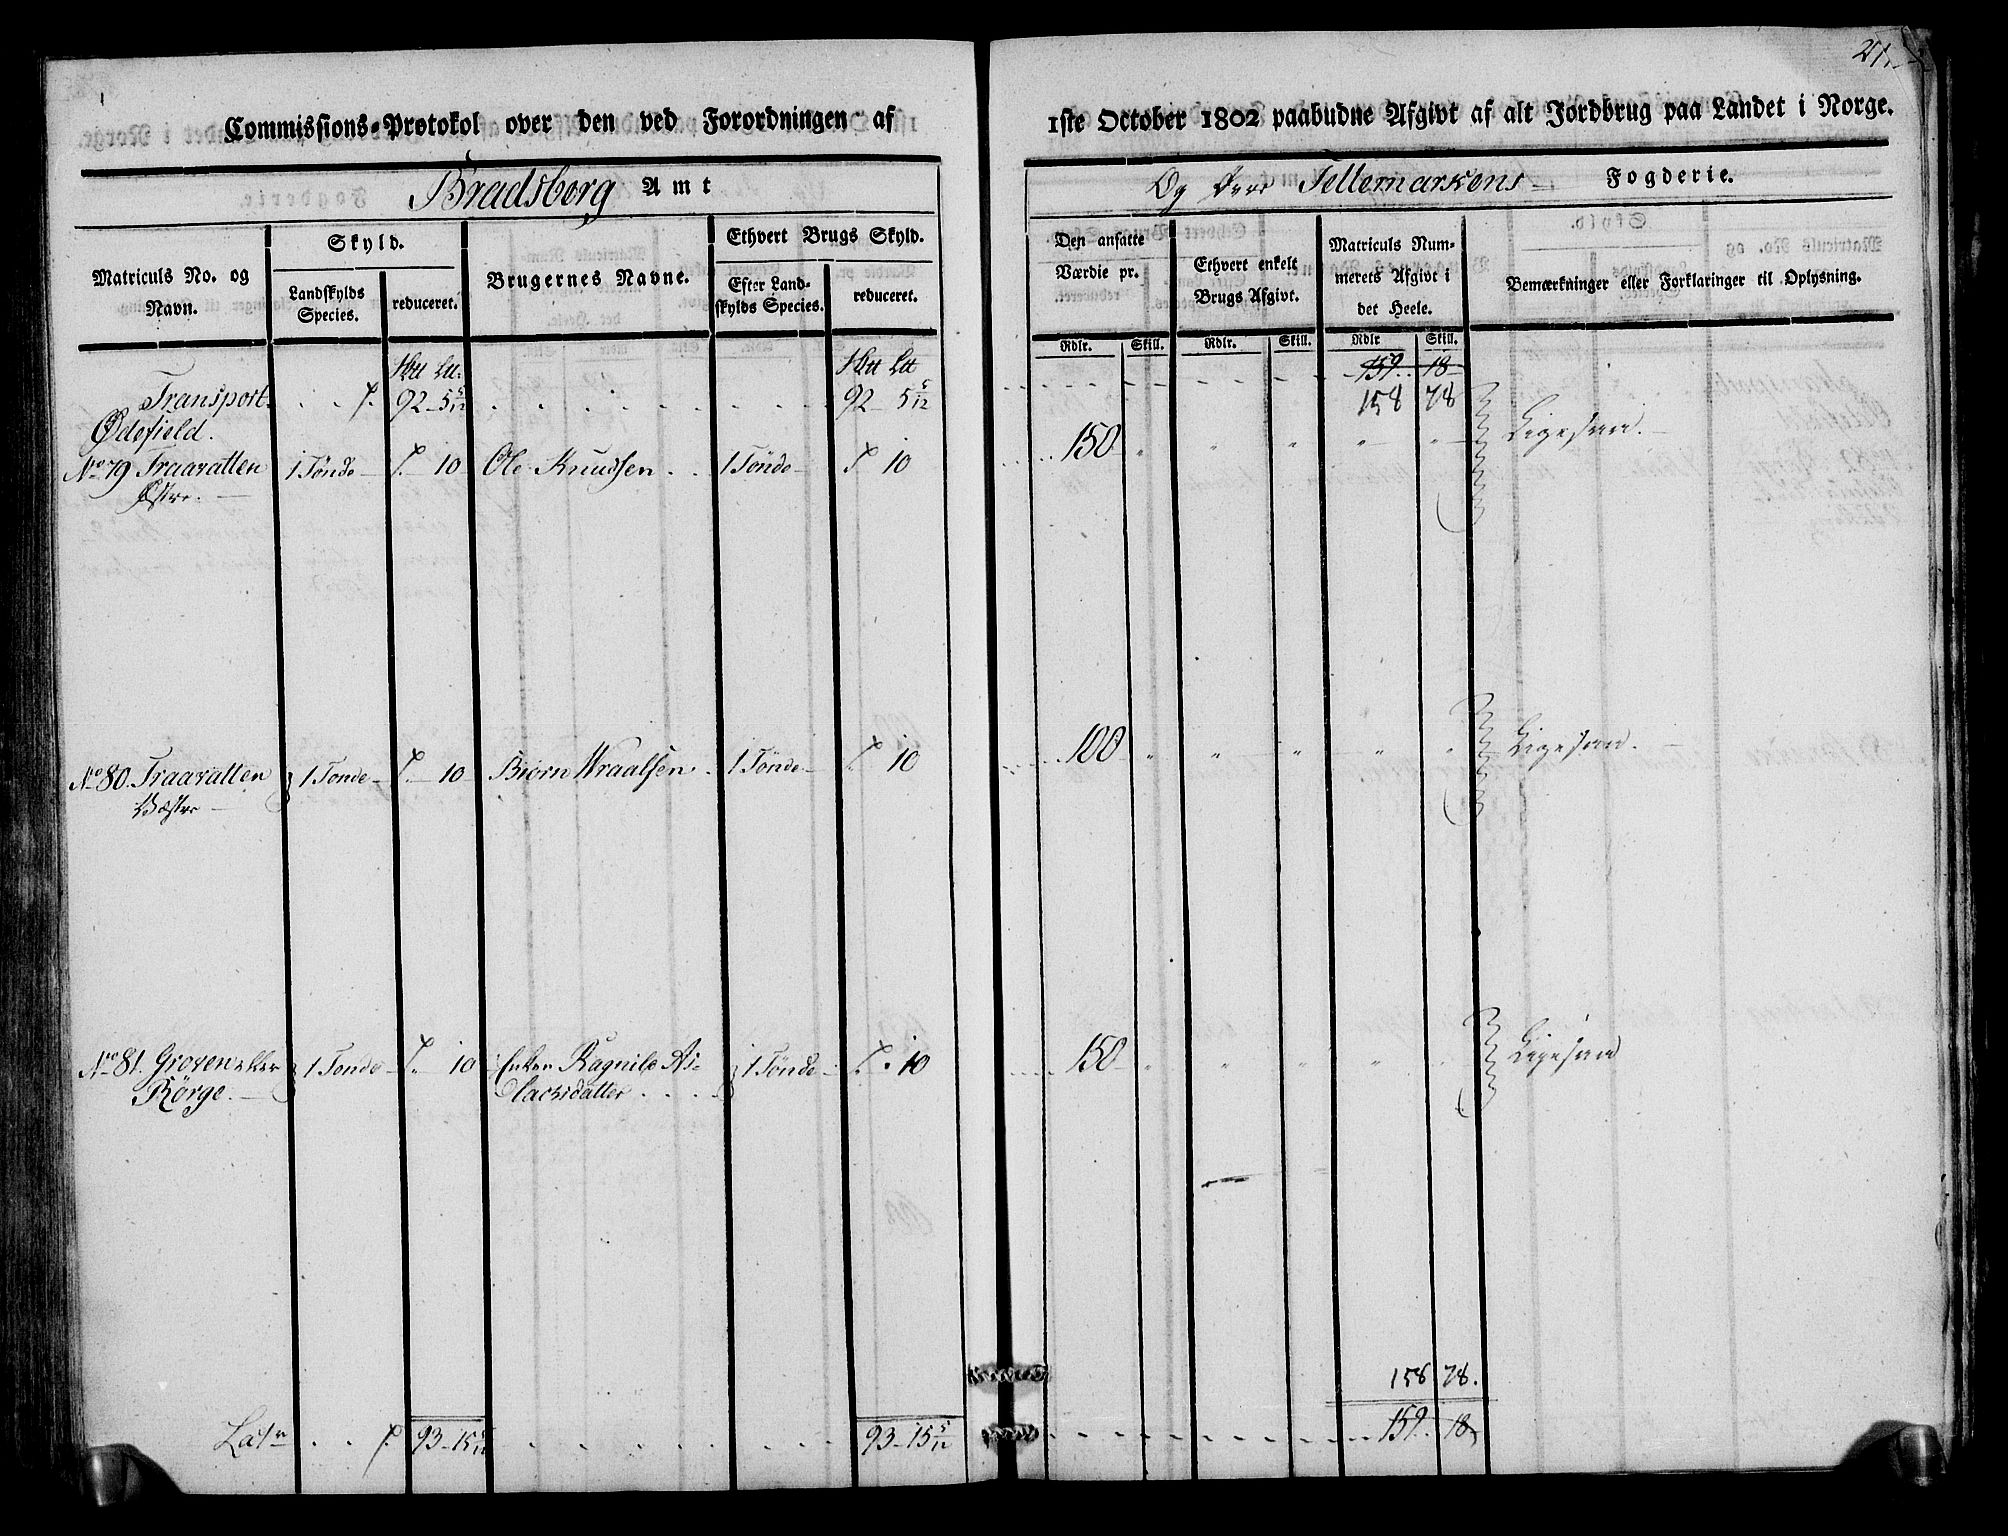 21.
Commissions-Protokol over den ved Forordningen af 1ste October 1802 paabudne Afgivt af alt Jordbrug paa Landet i Norge.
Bradsborg Amt
Og Tellemarkens Fogderie.
Matriculs No. og Navn.
Skyld.
Landskylds Species.
reduceret.
Brugernes Navne.
Ethvert Brugs Skyld.
Efter Landskylds Species.
reduceret.
Den ansatte Værdie pr.
Rdlr. Skill.
Ethvert enkelt Brugs Afgivt.
Rdlr. Skill.
Matriculs Nummerets Afgivt i det Heele.
Rdlr Skill.
Bemærkninger eller Forklaringer til Oplysning.
159 18
Transport 92 5 5/12 92 5 5/12 158 78
Ødefield.
No 79 Traavatten 1 Tönde 10 Ole Knudsen 1 Tönde 10 150 Ligesaa.
Østre.
No 80. Traavatten 1 Tönde 10 Biörn Wraalsen 1 Tönde 10 100 Ligesaa.
Væstre
No 81. Groven eller 1 Tönde 10 Enken Ragnild As- 1 Tönde 10 150 Ligesaa
Rörge. lacksdatter
158 78.
Lat 93 15 5/12 93 15 5/12 159 18